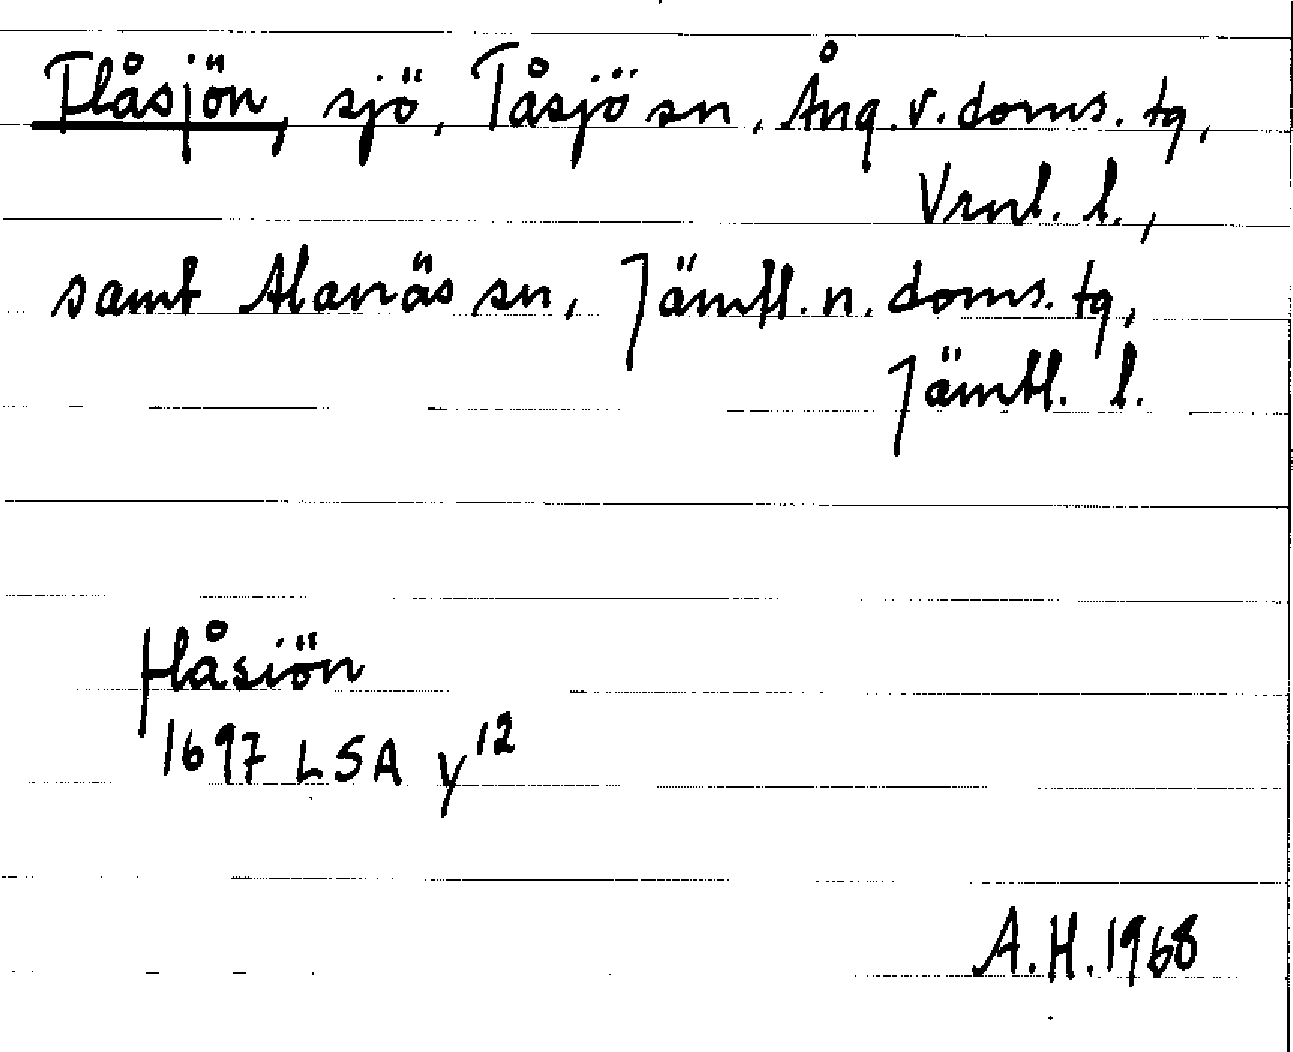 Flåsjön, sjö, Tåsjö sn, Ång.v.doms.tg,
Vrnl. l.,
samt Alanäs sn, Jämtl.n.doms.tg,
Jämtl. l.
flåsiön
1697 LSA y¹²
A.H.1968